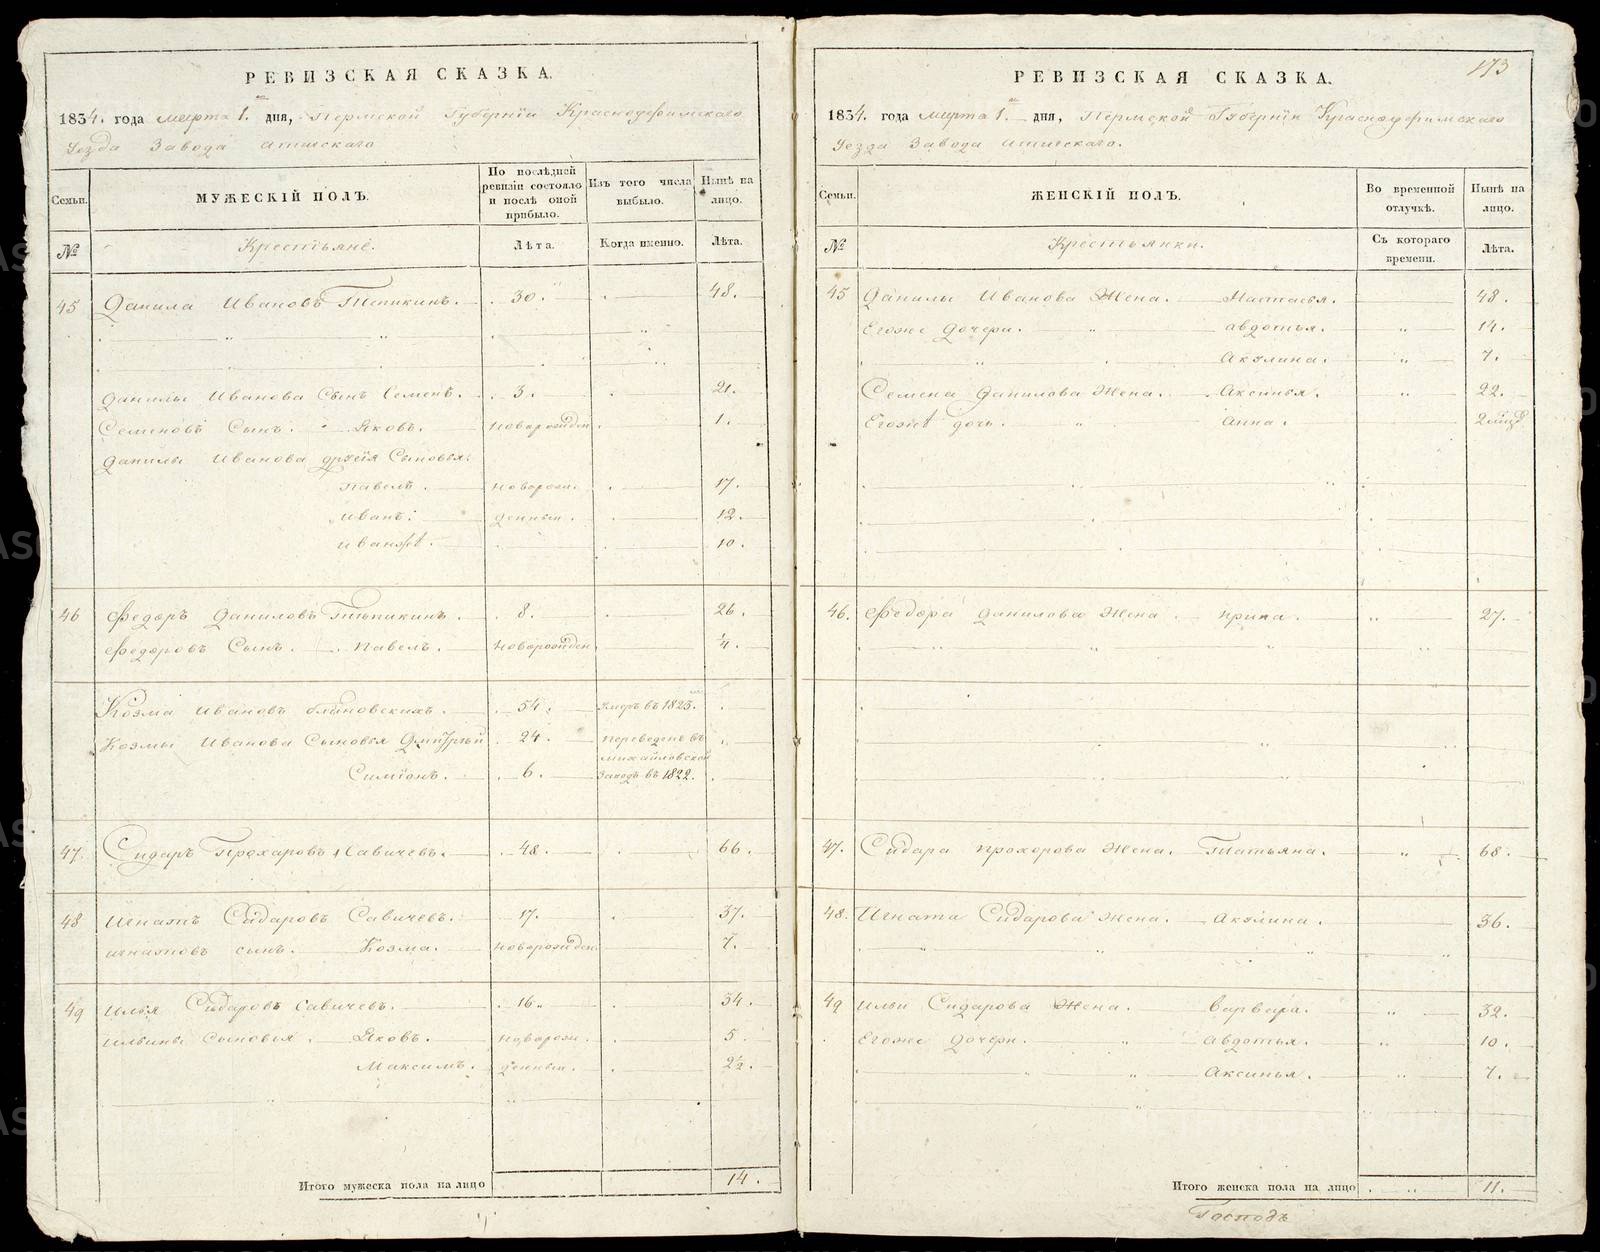 РЕВИЗСКАЯ СКАЗКА.
1834. года марта 1. дня, Пермской Губернїи Красноуфимскаго
Уезда Завода Атигскаго
Семьи. МУЖЕСКIЙ ПОЛЪ. По послѣдней ревизiи состояло и послѣ оной прибыло. Изъ того числа выбыло. Нынѣ на лицо.
№ Крестьяне. Лѣта. Когда именно. Лѣта.
45 Данила Ивановъ 30. 48.
Данилы Иванова Сынъ Семенъ. 3. 21.
Семеновъ Сынъ. Яковъ. новорожден 1.
Данилы Иванова другiя Сыновья.
Павелъ. новорож. 17.
Иванъ. денныи. 12.
Иванже. 10.
46 Федоръ Даниловъ 8. 26.
Федоровъ Сынъ. Павелъ. новорожден ¼.
Козма Ивановъ блиновскихъ. 54. умеръ въ 1823.
Козмы Иванова Сыновья Дмитрѣй 24. переведенъ въ
михайловской
Симїонъ. 6. Заводъ въ 1822.
47. Сидаръ Прохаровъ Савичевъ. 48. 66.
48 Игнатъ Сидаровъ Савичевъ. 17. 37.
игнатовъ сынъ. Козма. новорожден. 7.
49 Илья Сидаровъ Савичевъ. 16. 34.
ильины сыновья. Яковъ. новорож. 5.
Максимъ. денныи. 2½.
Итого мужеска пола на лицо 14.
173
РЕВИЗСКАЯ СКАЗКА.
1834. года марта 1. дня, Пермской Губернїи Красноуфимскаго
Уезда Завода Атигскаго.
Семьи. ЖЕНСКIЙ ПОЛЪ. Во временной отлучкѣ. Нынѣ на лицо.
№ Крестьянки. Съ котораго времени. Лѣта.
45 Данилы Иванова Жена. Настасья. 48.
Егоже дочери. авдотья. 14.
Акулина. 7.
Семена Данилова Жена. Аксинья. 22.
Егоже дочь. Анна. 2
46. Федора Данилова Жена Ирина. 27.
47. Сидара прохорова Жена. Татьяна. 68.
48. Игната Сидарова Жена. Акулина. 36.
49 Ильи Сидарова Жена. Варвара. 32.
Егоже дочери. Авдотья. 10.
Аксинья. 7.
Итого женска пола на лицо 11.
Господъ